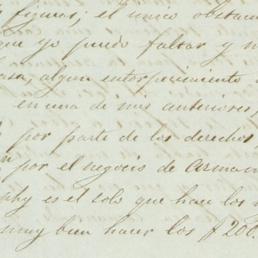 figurar; el unico obstac
que yo puedo faltar y m
casa, algun entorpecimiento
en una de mis anteriores,
por parte de los derechos
por el negocio de armam
phy es el solo que hace los
muy bien hacer los $200